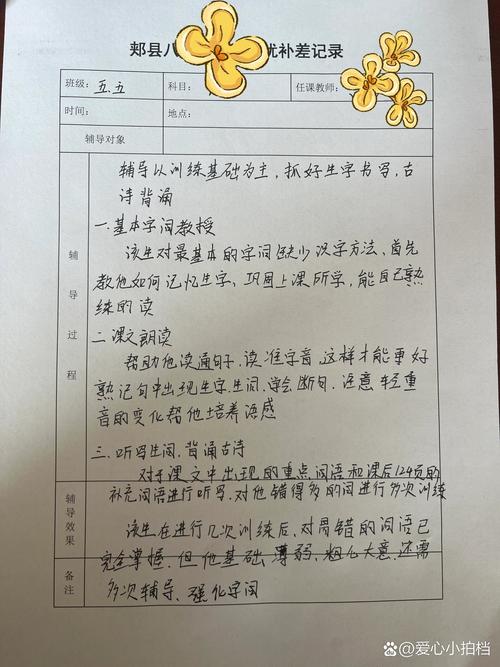 郏县八 优补差记录
班级：五.五 科目： 任课教师：
时间： 地点：
辅导对象
辅导过程
辅导以训练基础为主，抓好生字书写，古
诗背诵
一.基本字词教授
该生对最基本的字词缺少识字方法，首先
教他如何记忆生字，巩固上课所学，能自己熟
练的读
二.课文朗读
帮助他读通句子，读准字音，这样才能更好
熟记句中出现生字生词，学会断句，注意轻重
音的变化帮他培养语感
三、听写生词，背诵古诗
对于课文中出现的重点词语和课后124页的
补充词语进行听写，对他错得多的词进行多次训练
辅导效果
该生在进行几次训练后，对易错的词语已
完全掌握，但他基础薄弱，粗心大意，还需
备注
多次辅导、强化字词
@爱心小拍档